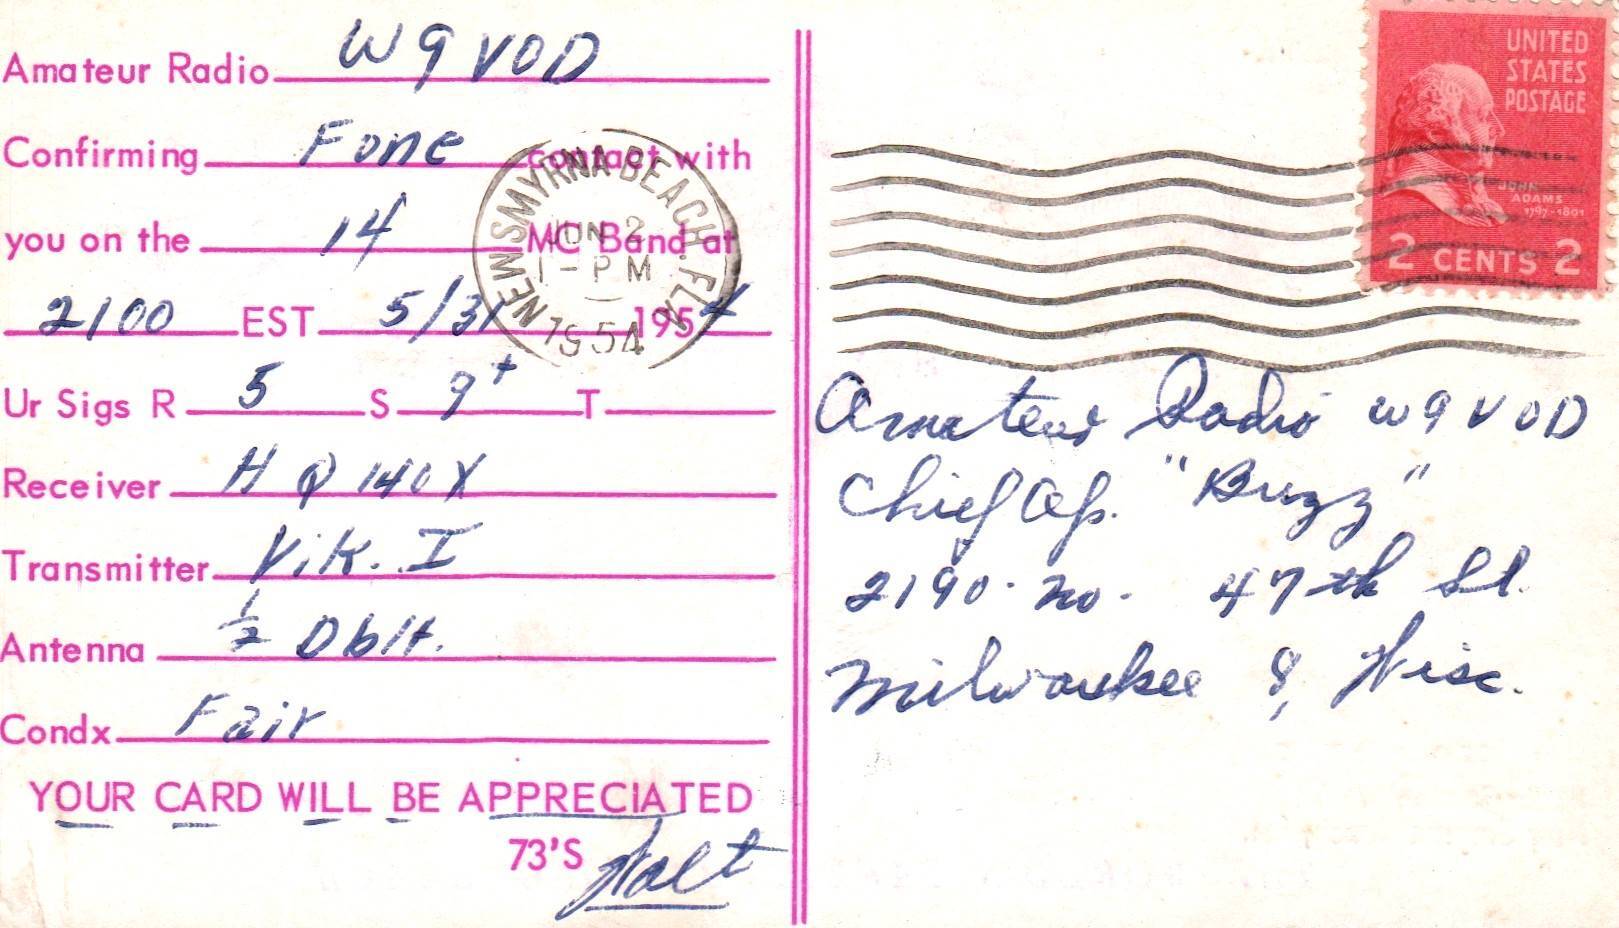 Amateur Radio W9VOD
Confirming Fone contact with
you on the 14 MC Band at
2100 EST 5/31 1954
Ur Sigs R 5 S 9+ T
Receiver HQ 140X
Transmitter Vik. I
Antenna 1/2 Dblt.
Condx Fair
YOUR CARD WILL BE APPRECIATED
73'S Walt
NEW SMYRNA BEACH. FLA
JUN 2
1 - PM
1954
UNITED
STATES
POSTAGE
JOHN
ADAMS
1797-1801
2 CENTS 2
Amateur Radio W9VOD
Chief Op. "Buzz"
2190 - No. 47th St.
Milwaukee 8, Wisc.